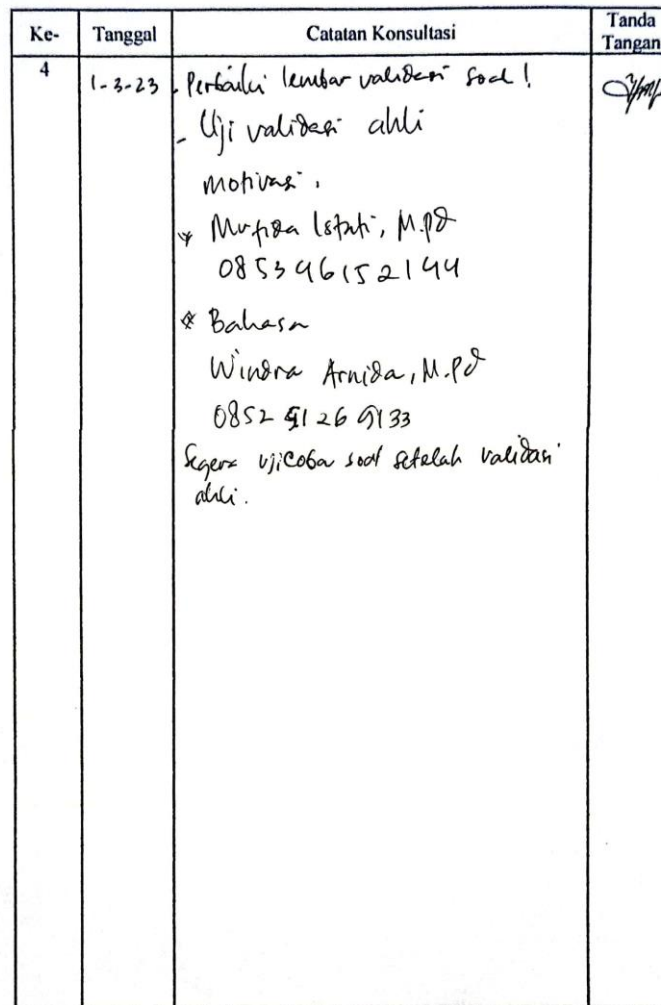 Ke- Tanggal Catatan Konsultasi Tanda Tangan
4 1-3-23 - Perbaiki lembar validasi soal!
- Uji validasi ahli
motivasi.
* Mufida Istati, M.Pd
085346152144
* Bahasa
Windra Arnida, M.Pd
0852 5126 9133
Segera ujicoba soal setelah validasi
ahli.